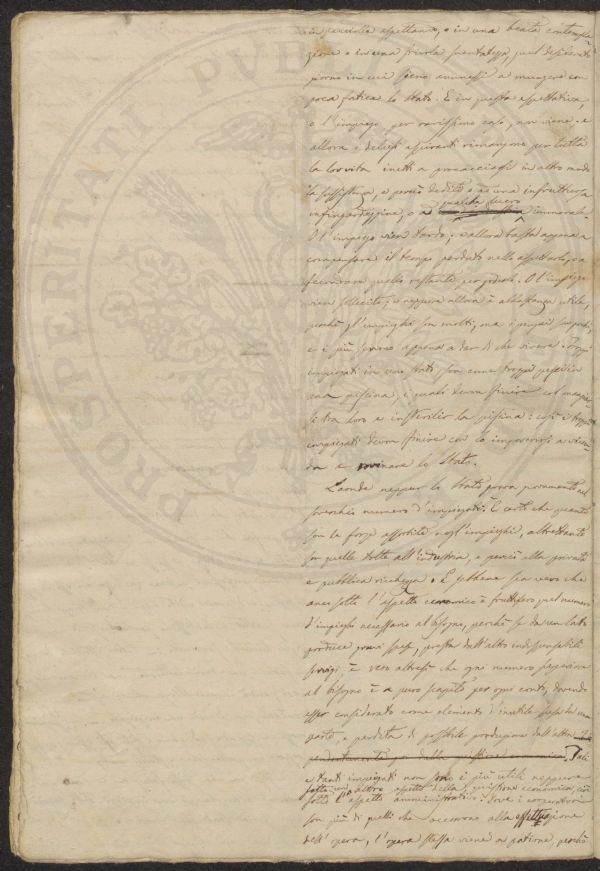 in perciolla aspettano, o in una beata contempla
zione o in una scivola sventatezza, quel desiderato
giorno in cui sieno ammessi a mungere con
poca fatica lo Stato. E in questa aspettativa,
o l'impiego per rarissimo caso, non viene, e
allora i delusi aspiranti rimangono per tutta
la lor vita inetti a procacciarsi in altro modo
la sussistenza, e perciò dediti o ad una infruttuosa
infingardaggine, o a
qualche lucro
immorale.
O l'impiego vien tardo; e allora basta appena a
compensare il tempo perduto nello aspettarlo, e a
fecondare quello restante per goderlo. O l'impiego
vien sollecito; e neppure allora è abbastanza utile,
perchè gl'impieghi son molti, ma i più
e i più servono appena a dar di che vivere. Troppi
impiegati in uno Stato, son come troppi pesci in
una peschiera, i quali devon finire col mangiar
si tra loro e insterilir la peschiera: così i troppi
impiegati devon finire con lo impoverirsi a vicen
da e rovinare lo Stato.
Laonde neppur lo Stato prova giovamento nel
soverchio numero d'impiegati. È certo che quante
son le forze assorbite negl'impieghi, altrettante
son quelle tolte all'industria, e perciò alla privata
e pubblica ricchezza. E sebbene sia vero che
anco sotto l'aspetto economico è fruttifero quel numero
d'impieghi necessario al bisogno, perchè se da un lato
produce gravi spese, presta dall'altro indispensabili
servigi; è vero altresì che ogni numero superiore
al bisogno è a puro scapito per ogni conto, dovendo
esser considerato come elemento d'inutile spesa da una
parte, e perdita di possibile produzione dall'altra.
Tali
e tanti impiegati non sono i più utili neppure
sotto un altro aspetto della quistione economica, cioè
sotto l'aspetto amministrativo. Dove i cooperatori
son più di quelli che occorrono alla effettuazione
dell'opera, l'opera stessa viene a patirne, perchè
PROSPERITATI PVBLICAE